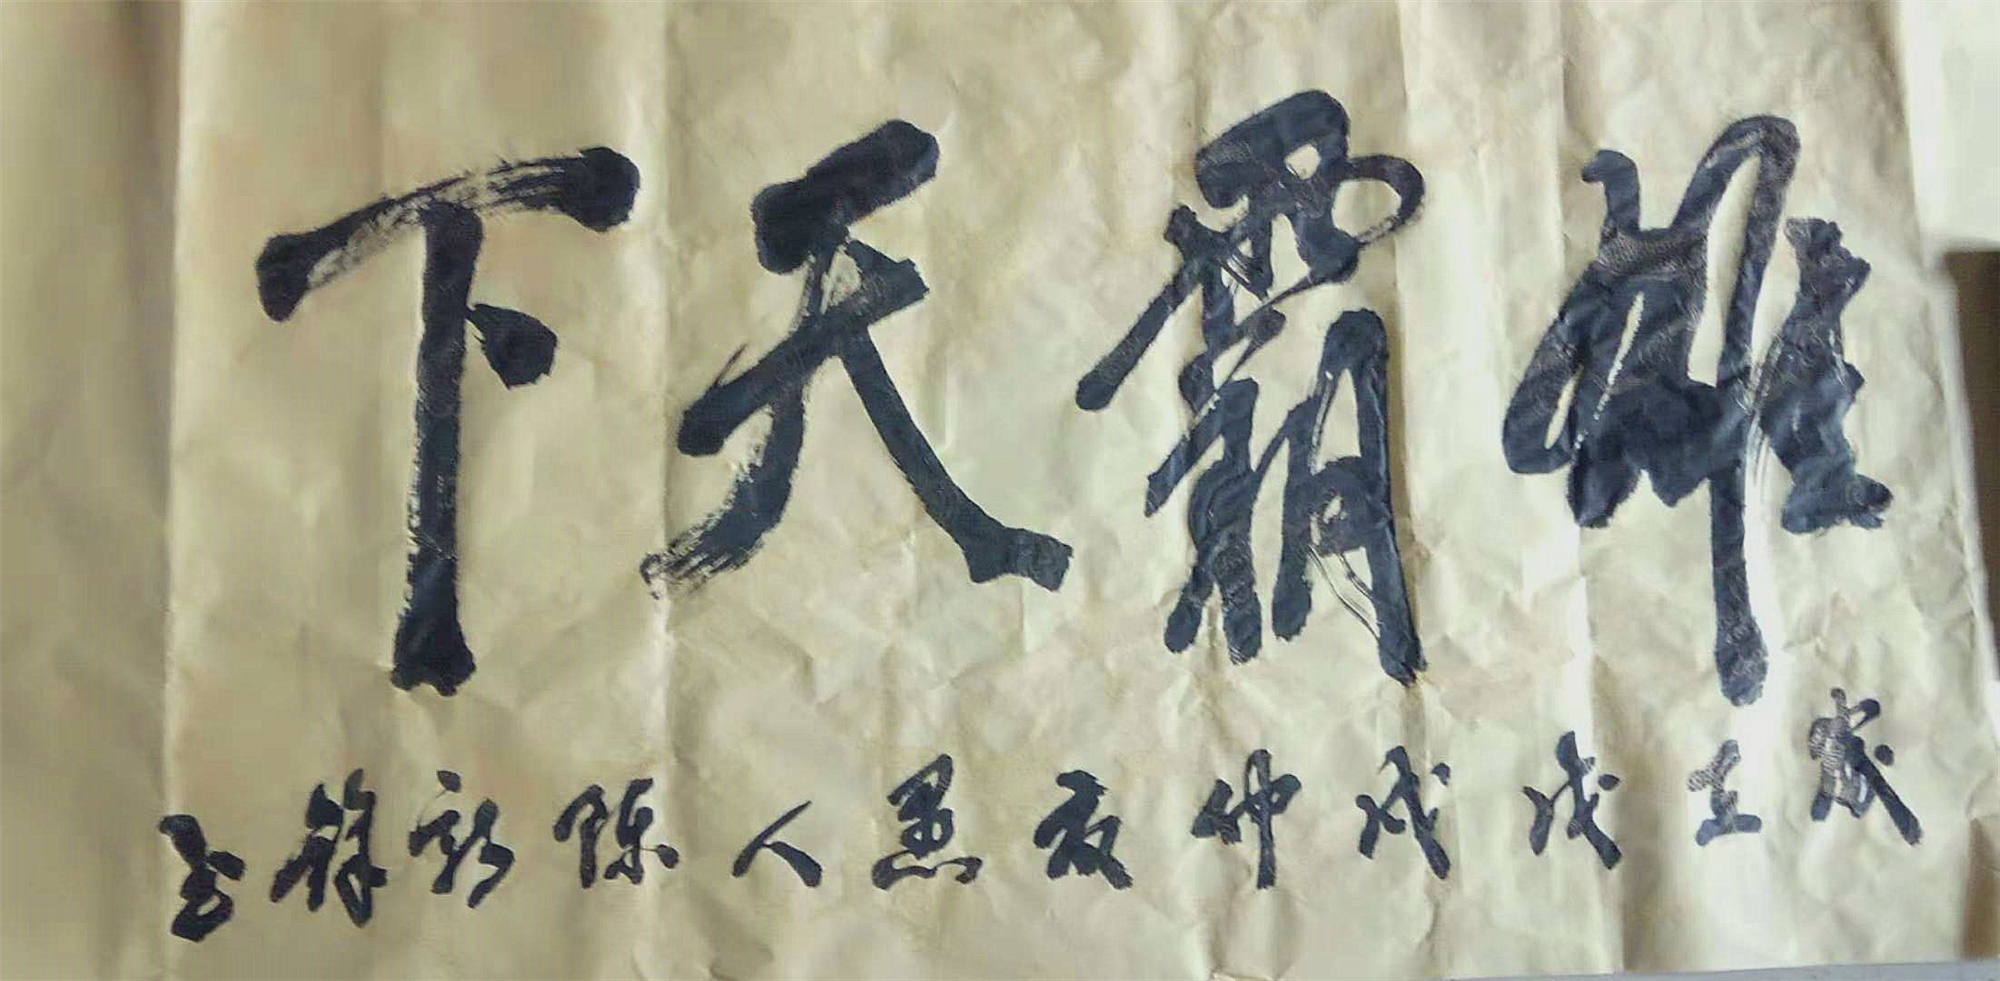 雄霸天下
岁在戊戌仲夏愚人陈新铎书